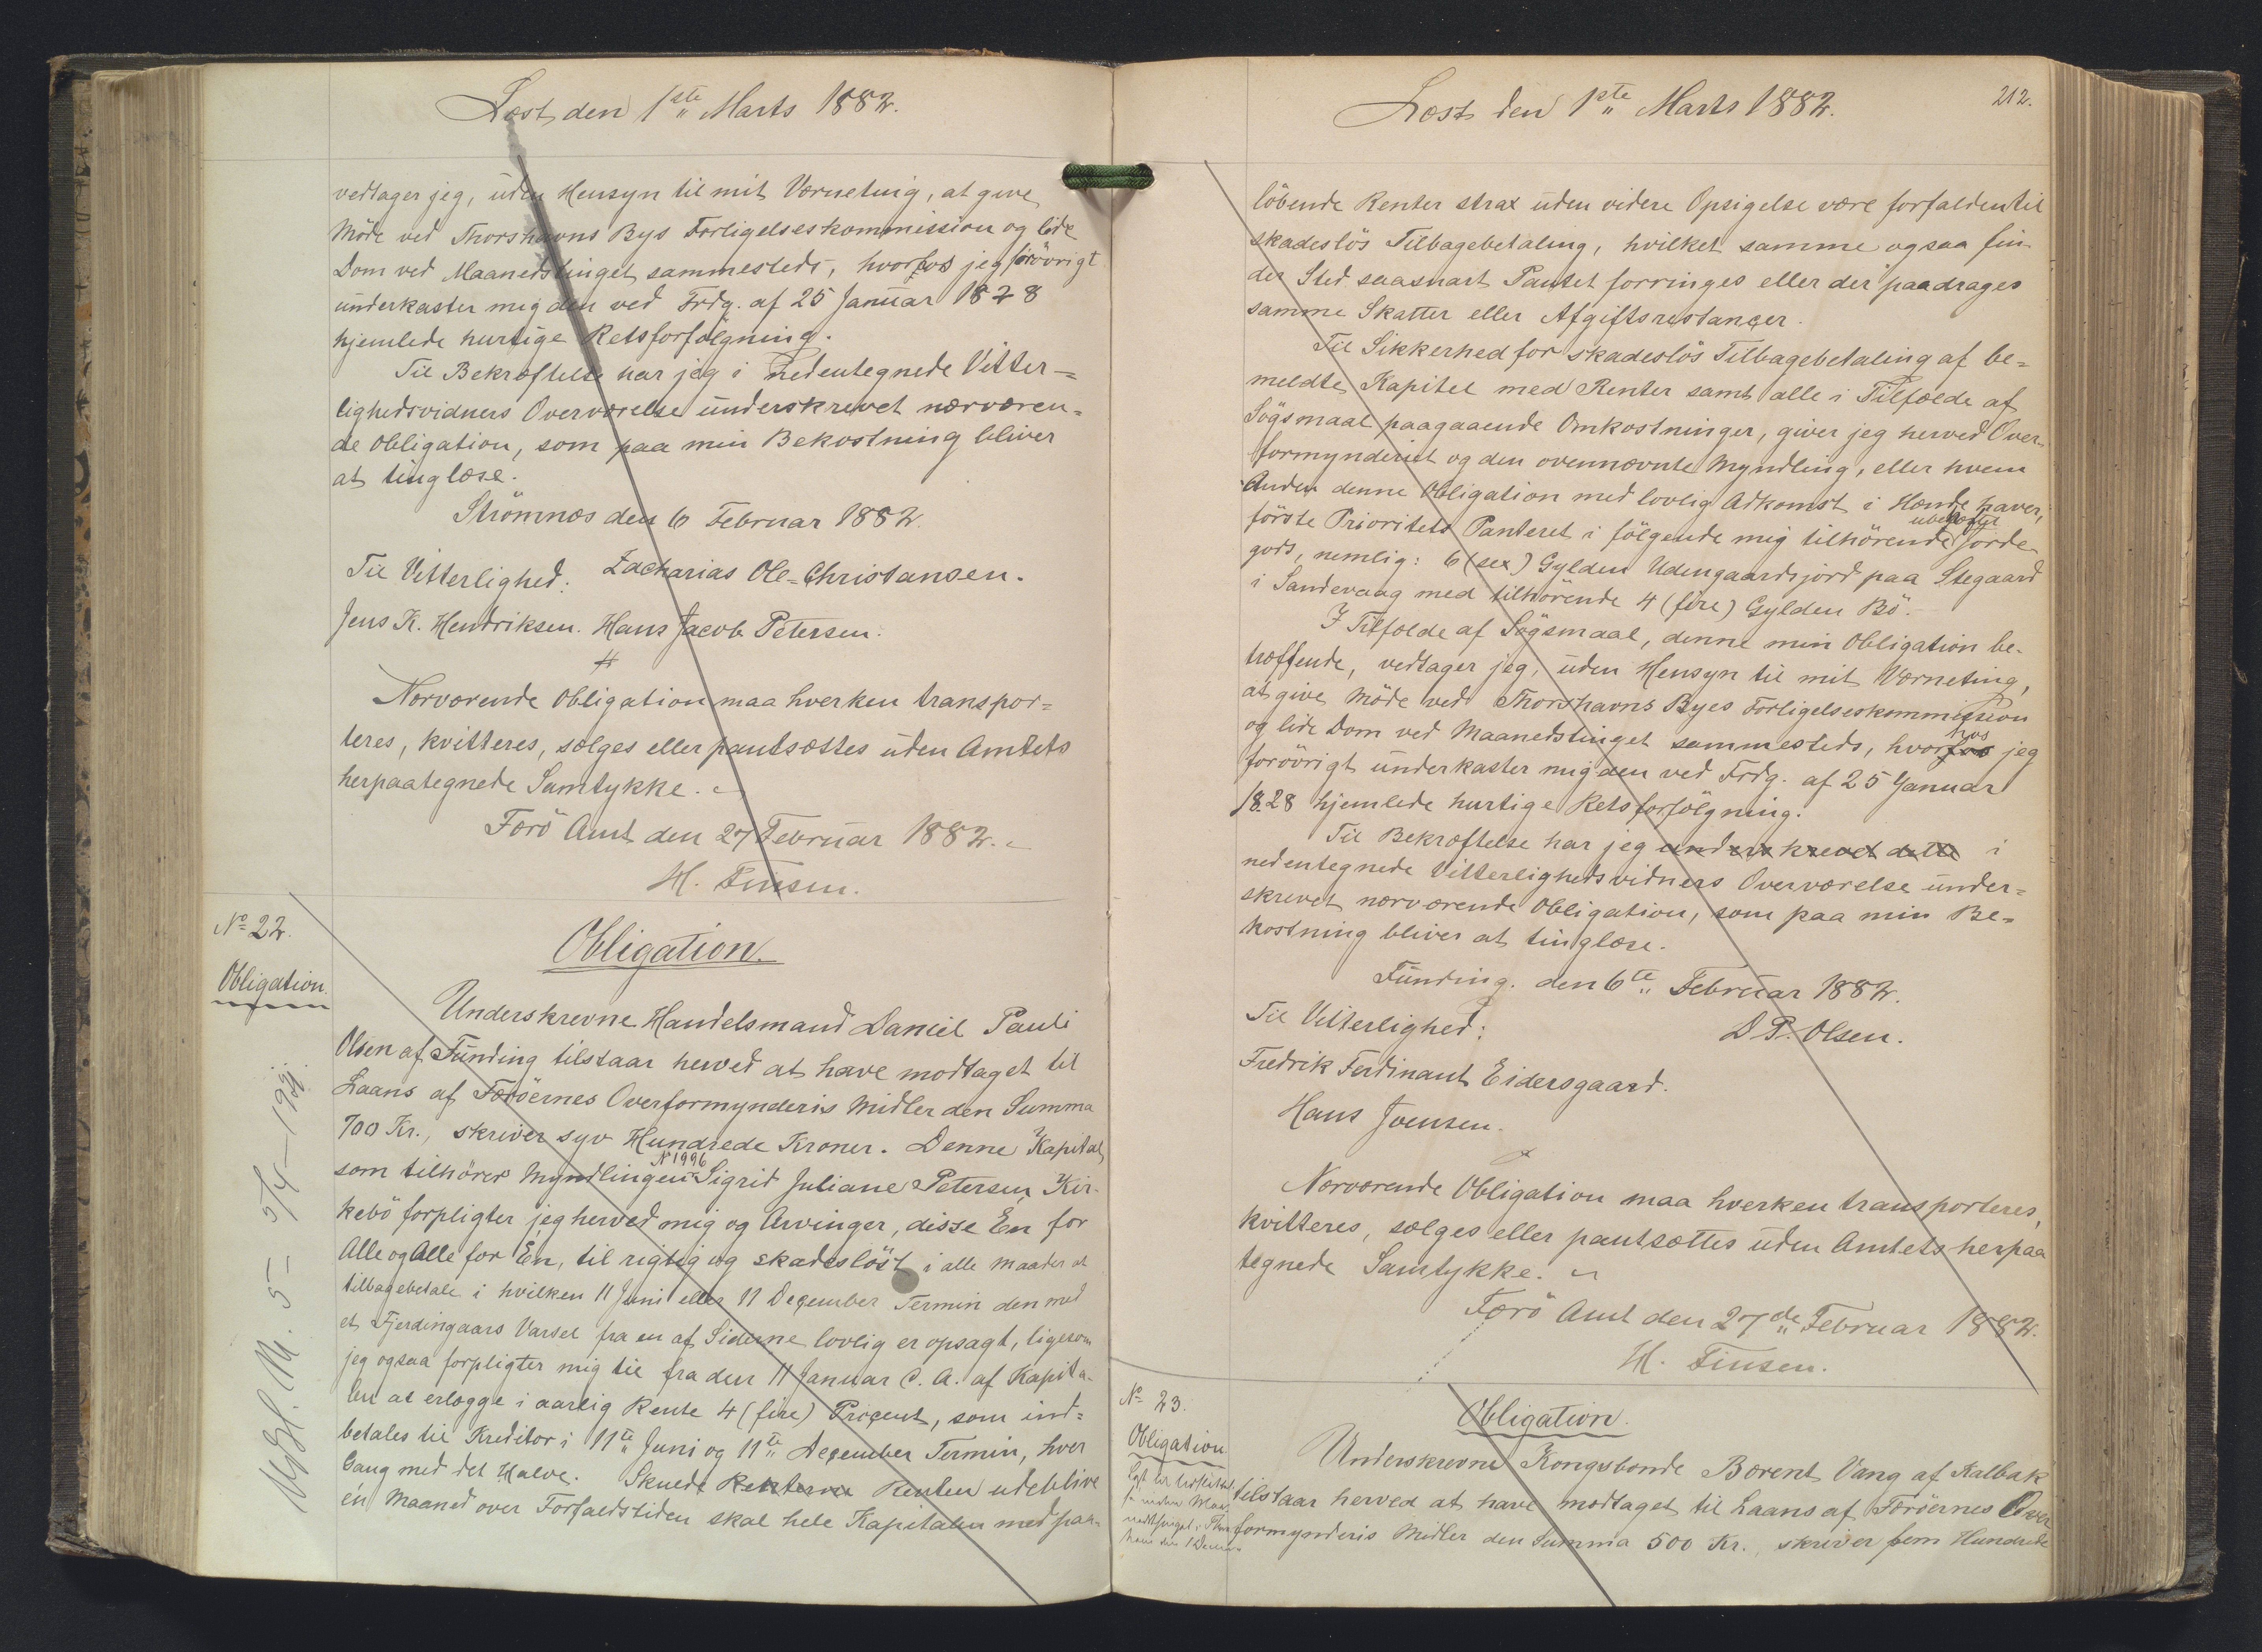 Læst den 1ste Marts 1882.
vedtager jeg, uden Hensyn til mit Værneting, at give
Möde ved Thorshavns Bys Forligelseskommission og lide
Dom ved Maanedstinget sammesteds, hvorhos jeg forövrigt
underkaster mig den ved Frdg. af 25 Januar 1828
hjemlede hurtige Retsforfölgning.
Til Bekræftelse har jeg i nedentegnede Vitter=
lighedsvidners Overværelse underskrevet nærværen=
de Obligation, som paa min Bekostning bliver
at tinglæse.
Strömnæs den 6 Februar 1882.
Til Vitterlighed: Zacharias Ole=Christansen.
Jens K. Hendriksen. Hans Jacob Petersen.
Nærværende Obligation maa hverken transpor=
teres, kvitteres, sælges eller pantsættes uden Amtets
herpaategnede Samtykke.
Færö Amt den 27 Februar 1882.
H. Finsen.
No 22.
Obligation.
Obligation.
Underskrevne Handelsmand Daniel Pauli
Olsen af Funding tilstaar herved at have modtaget til
Laans af Færöernes Overformynderis Midler den Summa
700 Kr., skriver syv Hundrede Kroner. Denne Kapital,
som tilhörer Myndlingen No 1996 Sigrid Juliane Petersen, Kir-
kebö forpligter jeg herved mig og Arvinger, disse Én for
Alle og Alle for Én, til rigtig og skadeslöst i alle Maader at
tilbagebetale i hvilken 11 Juni eller 11 December Termin den med
et Fjerdingaars Varsel fra en af Siderne lovlig er opsagt, ligesom
jeg ogsaa forpligter mig til fra den 11 Januar C. A. af Kapita-
len at erlægge i aarlig Rente 4 (fire) Procent, som ind=
betales til Kreditor i 11te Juni og 11te December Termin, hver
Gang med det Halve. Skulde Renterne Renten udeblive
én Maaned over Forfaldstiden skal hele Kapitalen med paa-
Læst den 1ste Marts 1882.
212.
löbende Renter strax uden videre Opsigelse være forfalden til
skadeslös Tilbagebetaling, hvilket samme ogsaa fin
der Sted saasnart Pantet forringes eller der paadrages
samme Skatter eller Afgiftsrestancer.
Til Sikkerhed for skadeslös Tilbagebetaling af be=
meldte Kapitel med Renter samt alle i Tilfælde af
Sögsmaal paagaaende Omkostninger, giver jeg herved Over-
formynderiet og den ovennævnte Myndling, eller hvem
Anden denne Obligation med lovlig Adkomst i Hænde haver,
förste Prioritets Panteret i fölgende mig tilhörende ubehæftet Jorde
gods, nemlig: 6 (sex) Gylden Udengaardsjord paa Stegaard
i Sandevaag med tilhörende 4 (fire) Gylden Bö.
I Tilfælde af Sögsmaal, denne min Obligation be-
træffende, vedtager jeg, uden Hensyn til mit Værneting,
at give Möde ved Thorshavns Byes Forligelseskommission
og lide Dom ved Maanedstinget sammesteds, hvorhos jeg
forövrigt underkaster mig den ved Frdg. af 25 Januar
1828 hjemlede hurtige Retsforfölgning.
Til Bekræftelse har jeg underskrevet dette i
nedentegnede Vitterlighedsvidners Overværelse under=
skrevet nærværende Obligation, som paa min Be=
kostning bliver at tinglæse.
Funding. den 6te Februar 1882.
Til Vitterlighed: D. P. Olsen.
Fredrik Ferdinant Eidersgaard.
Hans Joensen.
Nærværende Obligation maa hverken transporteres,
kvitteres, sælges eller pantsættes uden Amtets herpaa
tegnede Samtykke.
Færö Amt den 27de Februar 1882.
H. Finsen.
No 23.
Obligation
Obligation.
Underskrevne Kongsbonde Bærent Vang af Kalbak
tilstaar herved at have modtaget til Laans af Færöernes Over
formynderis Midler den Summa 500 Kr., skriver fem Hundrede